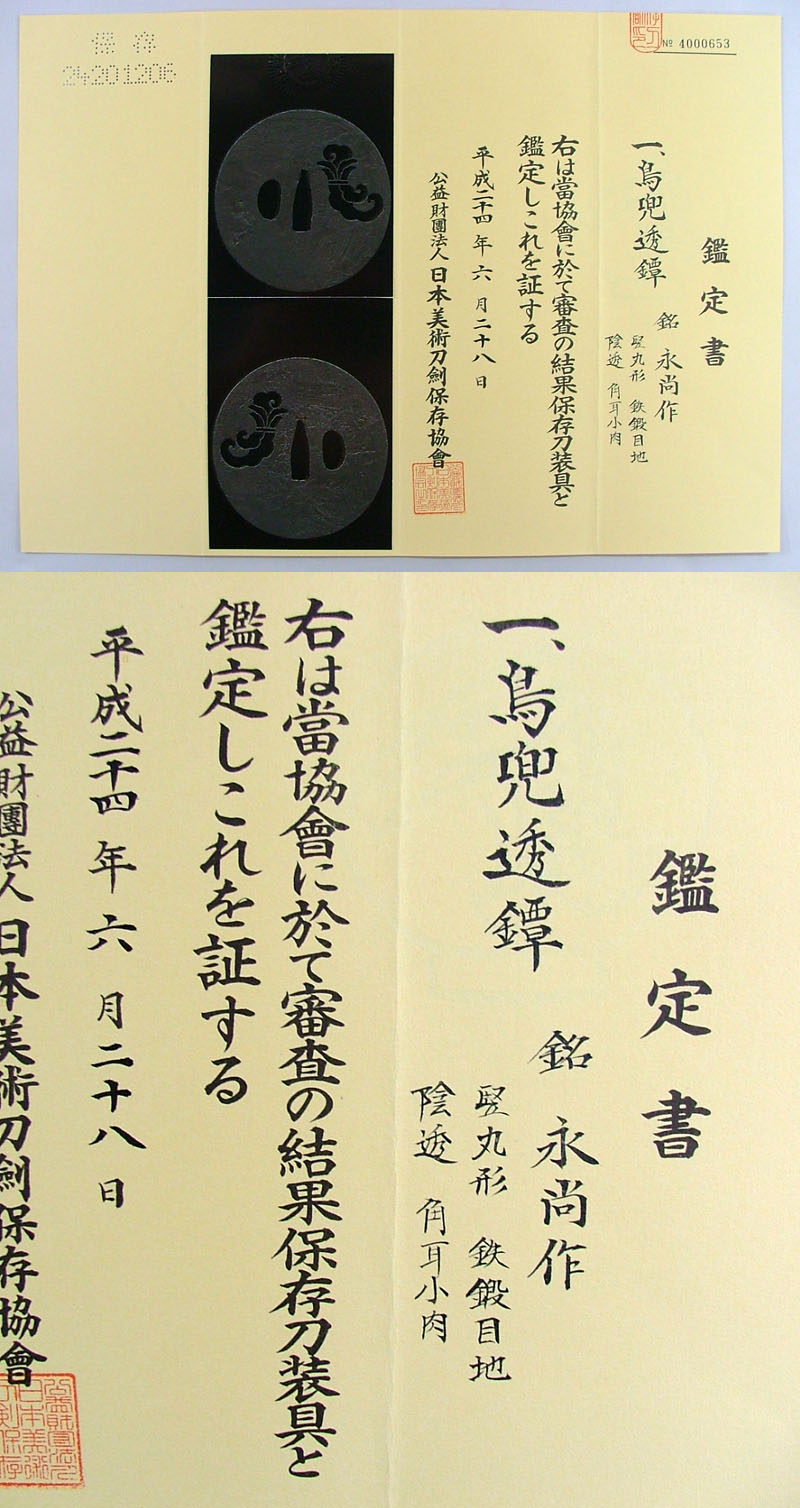 保存
24201206
№ 4000653
鑑定書
一、鳥兜透鐔
銘 永尚作
竪丸形 鉄鍛目地
陰透 角耳小肉
右は當協會に於て審査の結果保存刀装具と
鑑定しこれを証する
平成二十四年六月二十八日
公益財團法人日本美術刀劍保存協會
鑑定書
一、鳥兜透鐔
銘 永尚作
竪丸形 鉄鍛目地
陰透 角耳小肉
右は當協會に於て審査の結果保存刀装具と
鑑定しこれを証する
平成二十四年六月二十八日
公益財團法人日本美術刀劍保存協會